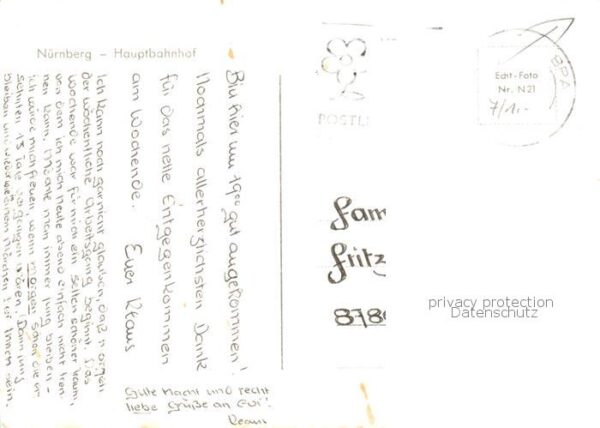 Nürnberg – Hauptbahnhof
Bin hier um 19⁰⁰ gut angekommen!
Nochmals allerherzlichsten Dank
für das nette Entgegenkommen
am Wochende. Euer Klaus
Ich kann noch gar nicht glauben, daß morgen
der wöchentliche Arbeitsgang beginnt. Das
Wochende war für mich ein selten schöner Traum,
von dem ich mich heute abend einfach nicht tren-
nen kann. Möchte man immer jung bleiben –
ich würde mich freuen, wenn morgen schon die er-
sehnten 13 Jahre vergangen wären! Dann jung
bleiben und wieder wie einem Märchen bei Ihnen sein.
Gute Nacht und recht
liebe Grüße an Evi!
Klaus
POSTL
BPA
Echt-Foto
Nr. N 21
7/1,-
Fam
Fritz
878
privacy protection
Datenschutz